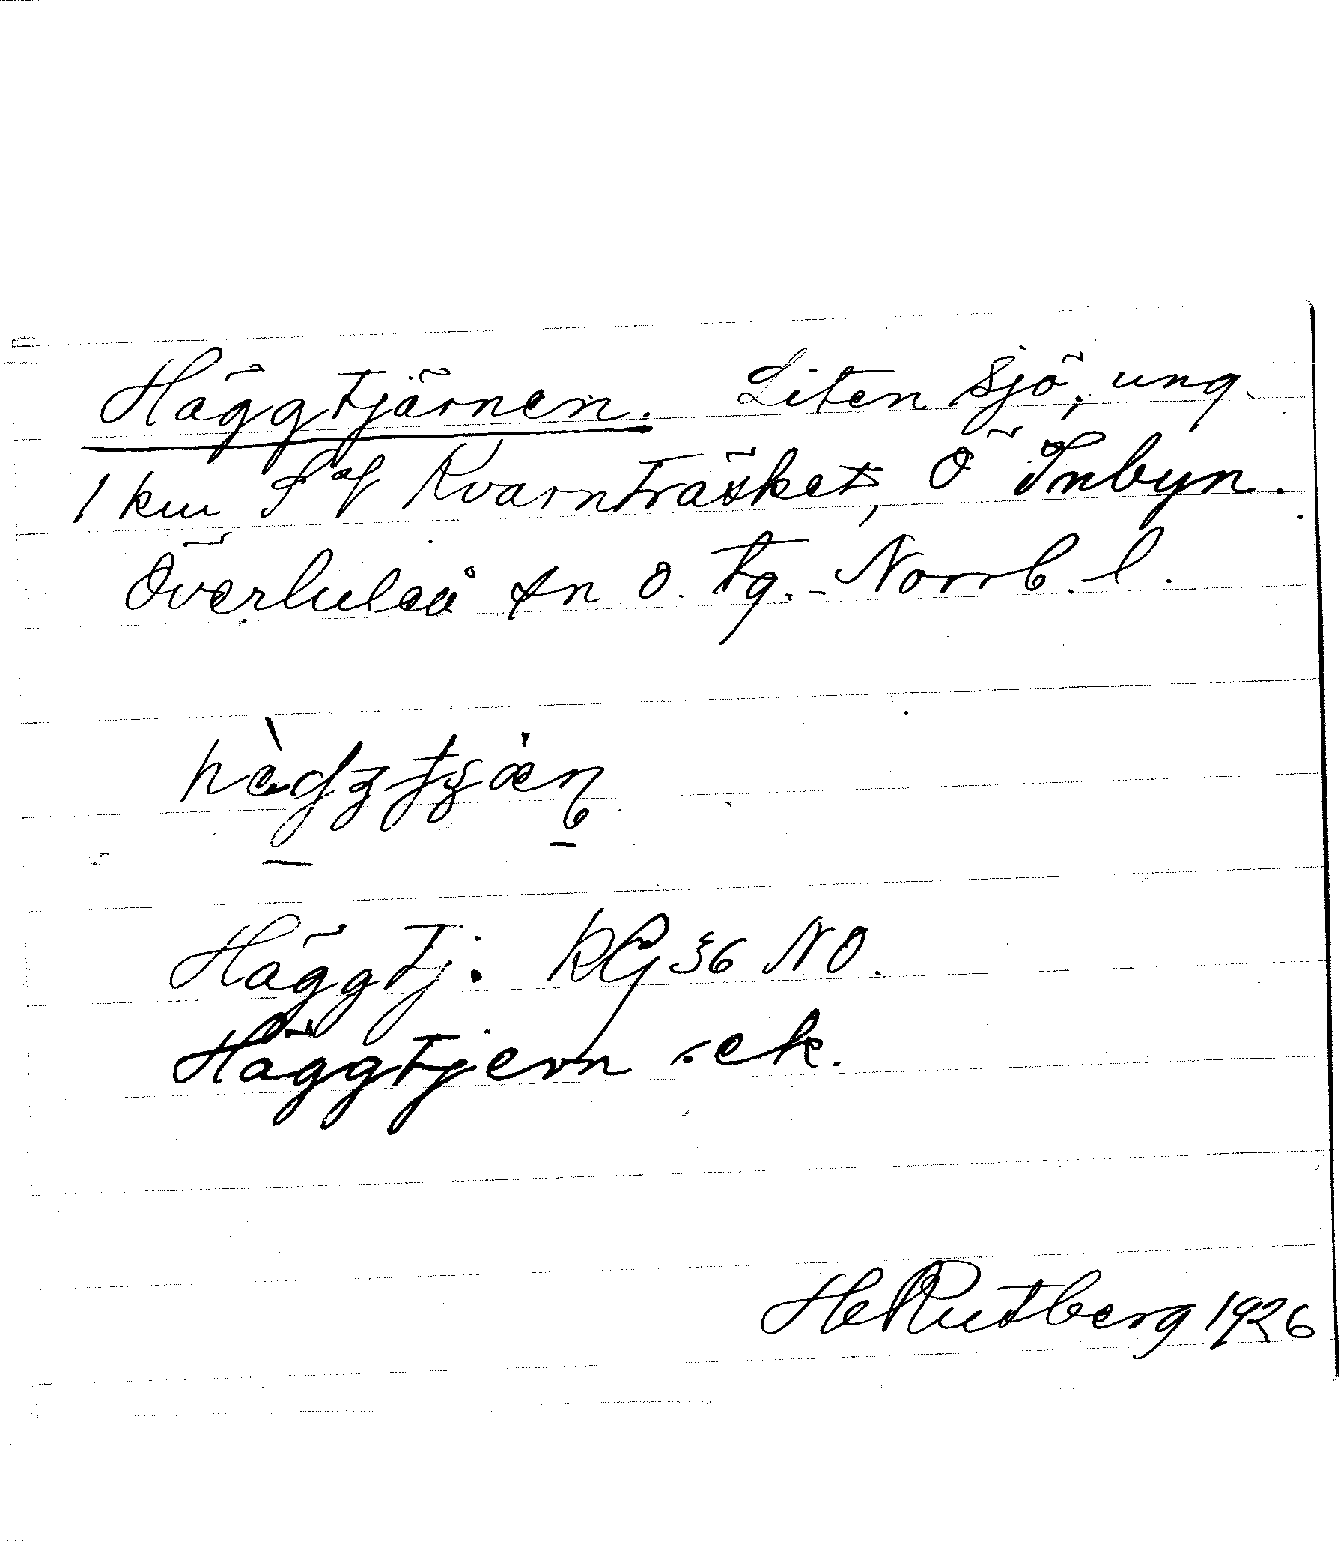 Häggtjärnen. Liten sjö, ung.
1 km SV Kvarnträsket, Ö Inbyn.
Överluleå sn o. tg. Norrb. l.
Häggtj. RG 36 NO.
Häggtjern .ek.
H Rutberg 1926